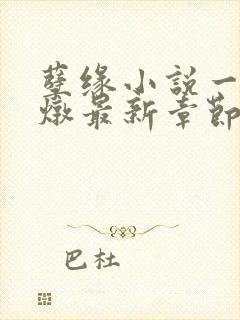 孽缘小説一
燉最新章節
巴杜